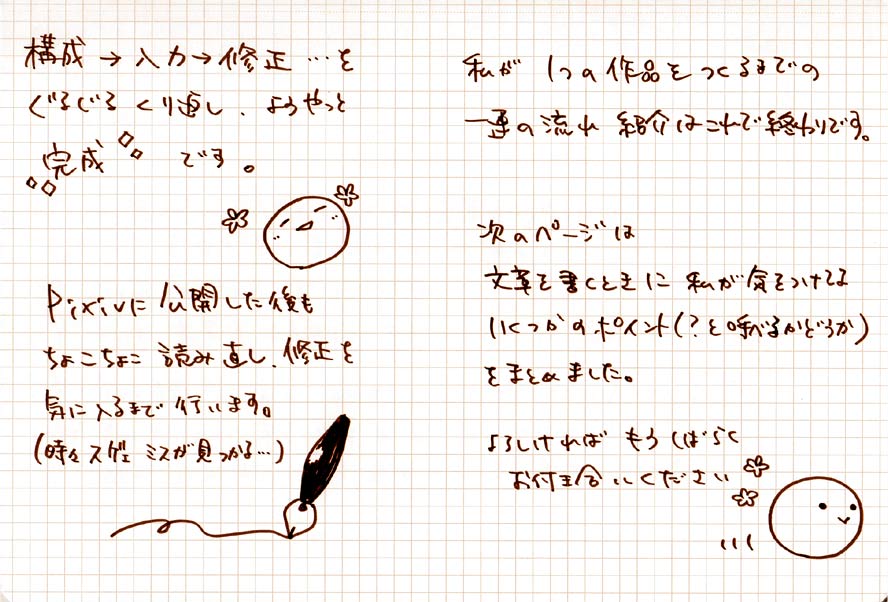 構成→入力→修正…を
ぐるぐるくり返し、ようやっと
完成です。
Pixivに公開した後も
ちょこちょこ読み直し、修正を
気に入るまで行います。
(時々スゲェミスが見つかる…)
私が1つの作品をつくるまでの
一連の流れ紹介はこれで終わりです。
次のページは
文章を書くときに私が気をつけてる
いくつかのポイント(?と呼べるかどうか)
をまとめました。
よろしければもうしばらく
お付き合いください